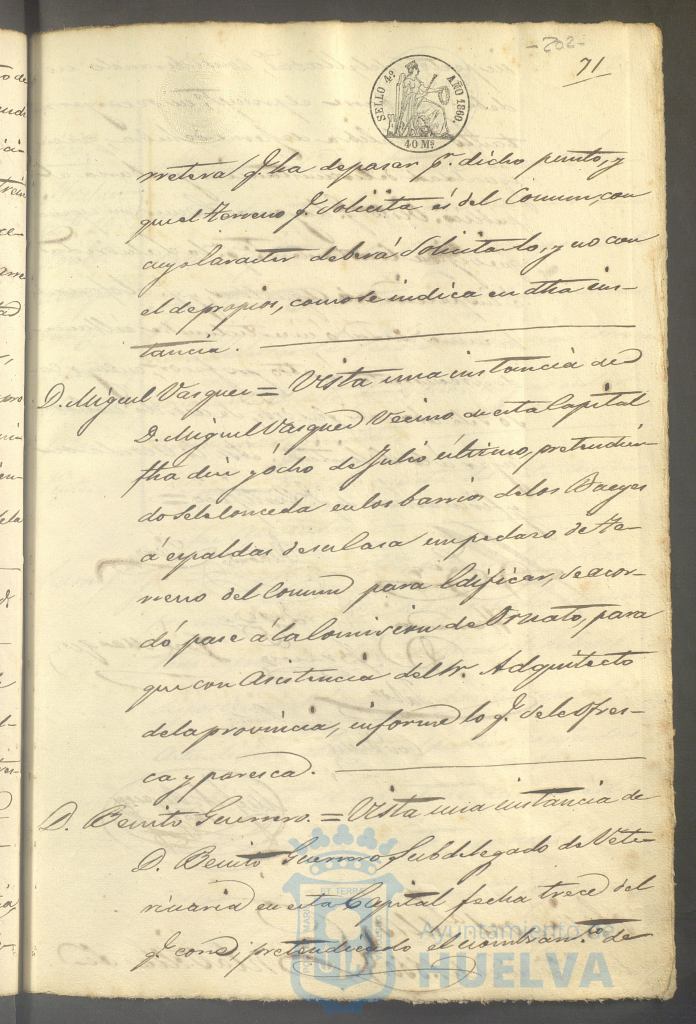 -202-
71
SELLO 4º AÑO 1860.
40 Mˢ
rretera q.e ha de pasar p.r dicho punto, y
que el terreno q.e solicita és del Comun, con
cuyo caracter deberá solicitarlo, y no con
el de propios, como se indica en dha ins-
tancia.
D. Miguel Vasquez = Vista una instancia de
D. Miguel Vasquez Vecino de esta Capital
fha diez y ócho de Julio último, pretendien-
do se le conceda en los barrios de los
á espaldas de su Casa un pedazo de te-
rreno del Comun para Edificar, se acor-
dó pase á la Comision de Ornato, para
que con Asistencia del Sr. Adquitecto
de la provincia, informe lo q.e se le Ofres-
ca y paresca.
D. Benito Guerrero. = Vista una instancia de
D. Benito Guerrero, Subdelegado de Vete-
rinaria en esta Capital fecha trece del
q.e corre, pretendiendo el nombram.to de
PORTUS MARIS ET TERRAE
Ayuntamiento de
HUELVA